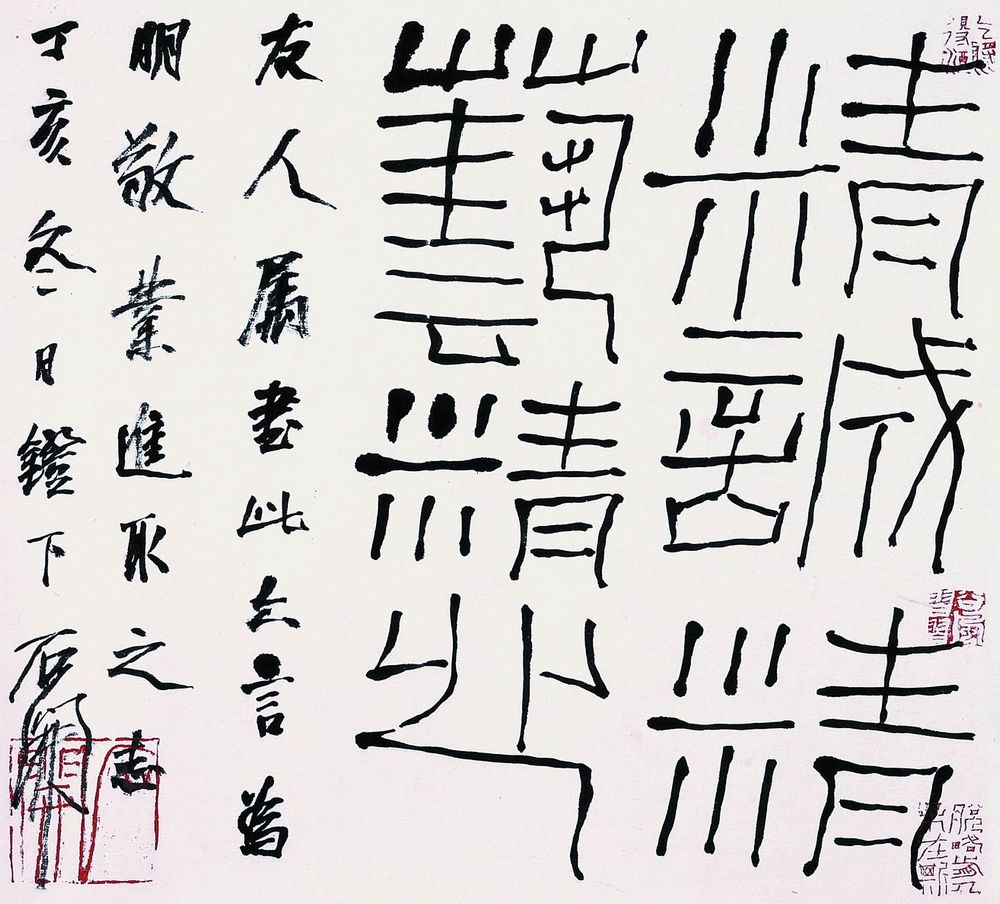 精誠精
藝精
友人属書此六言
明敬業進取之志
丁亥冬日鐙下石開